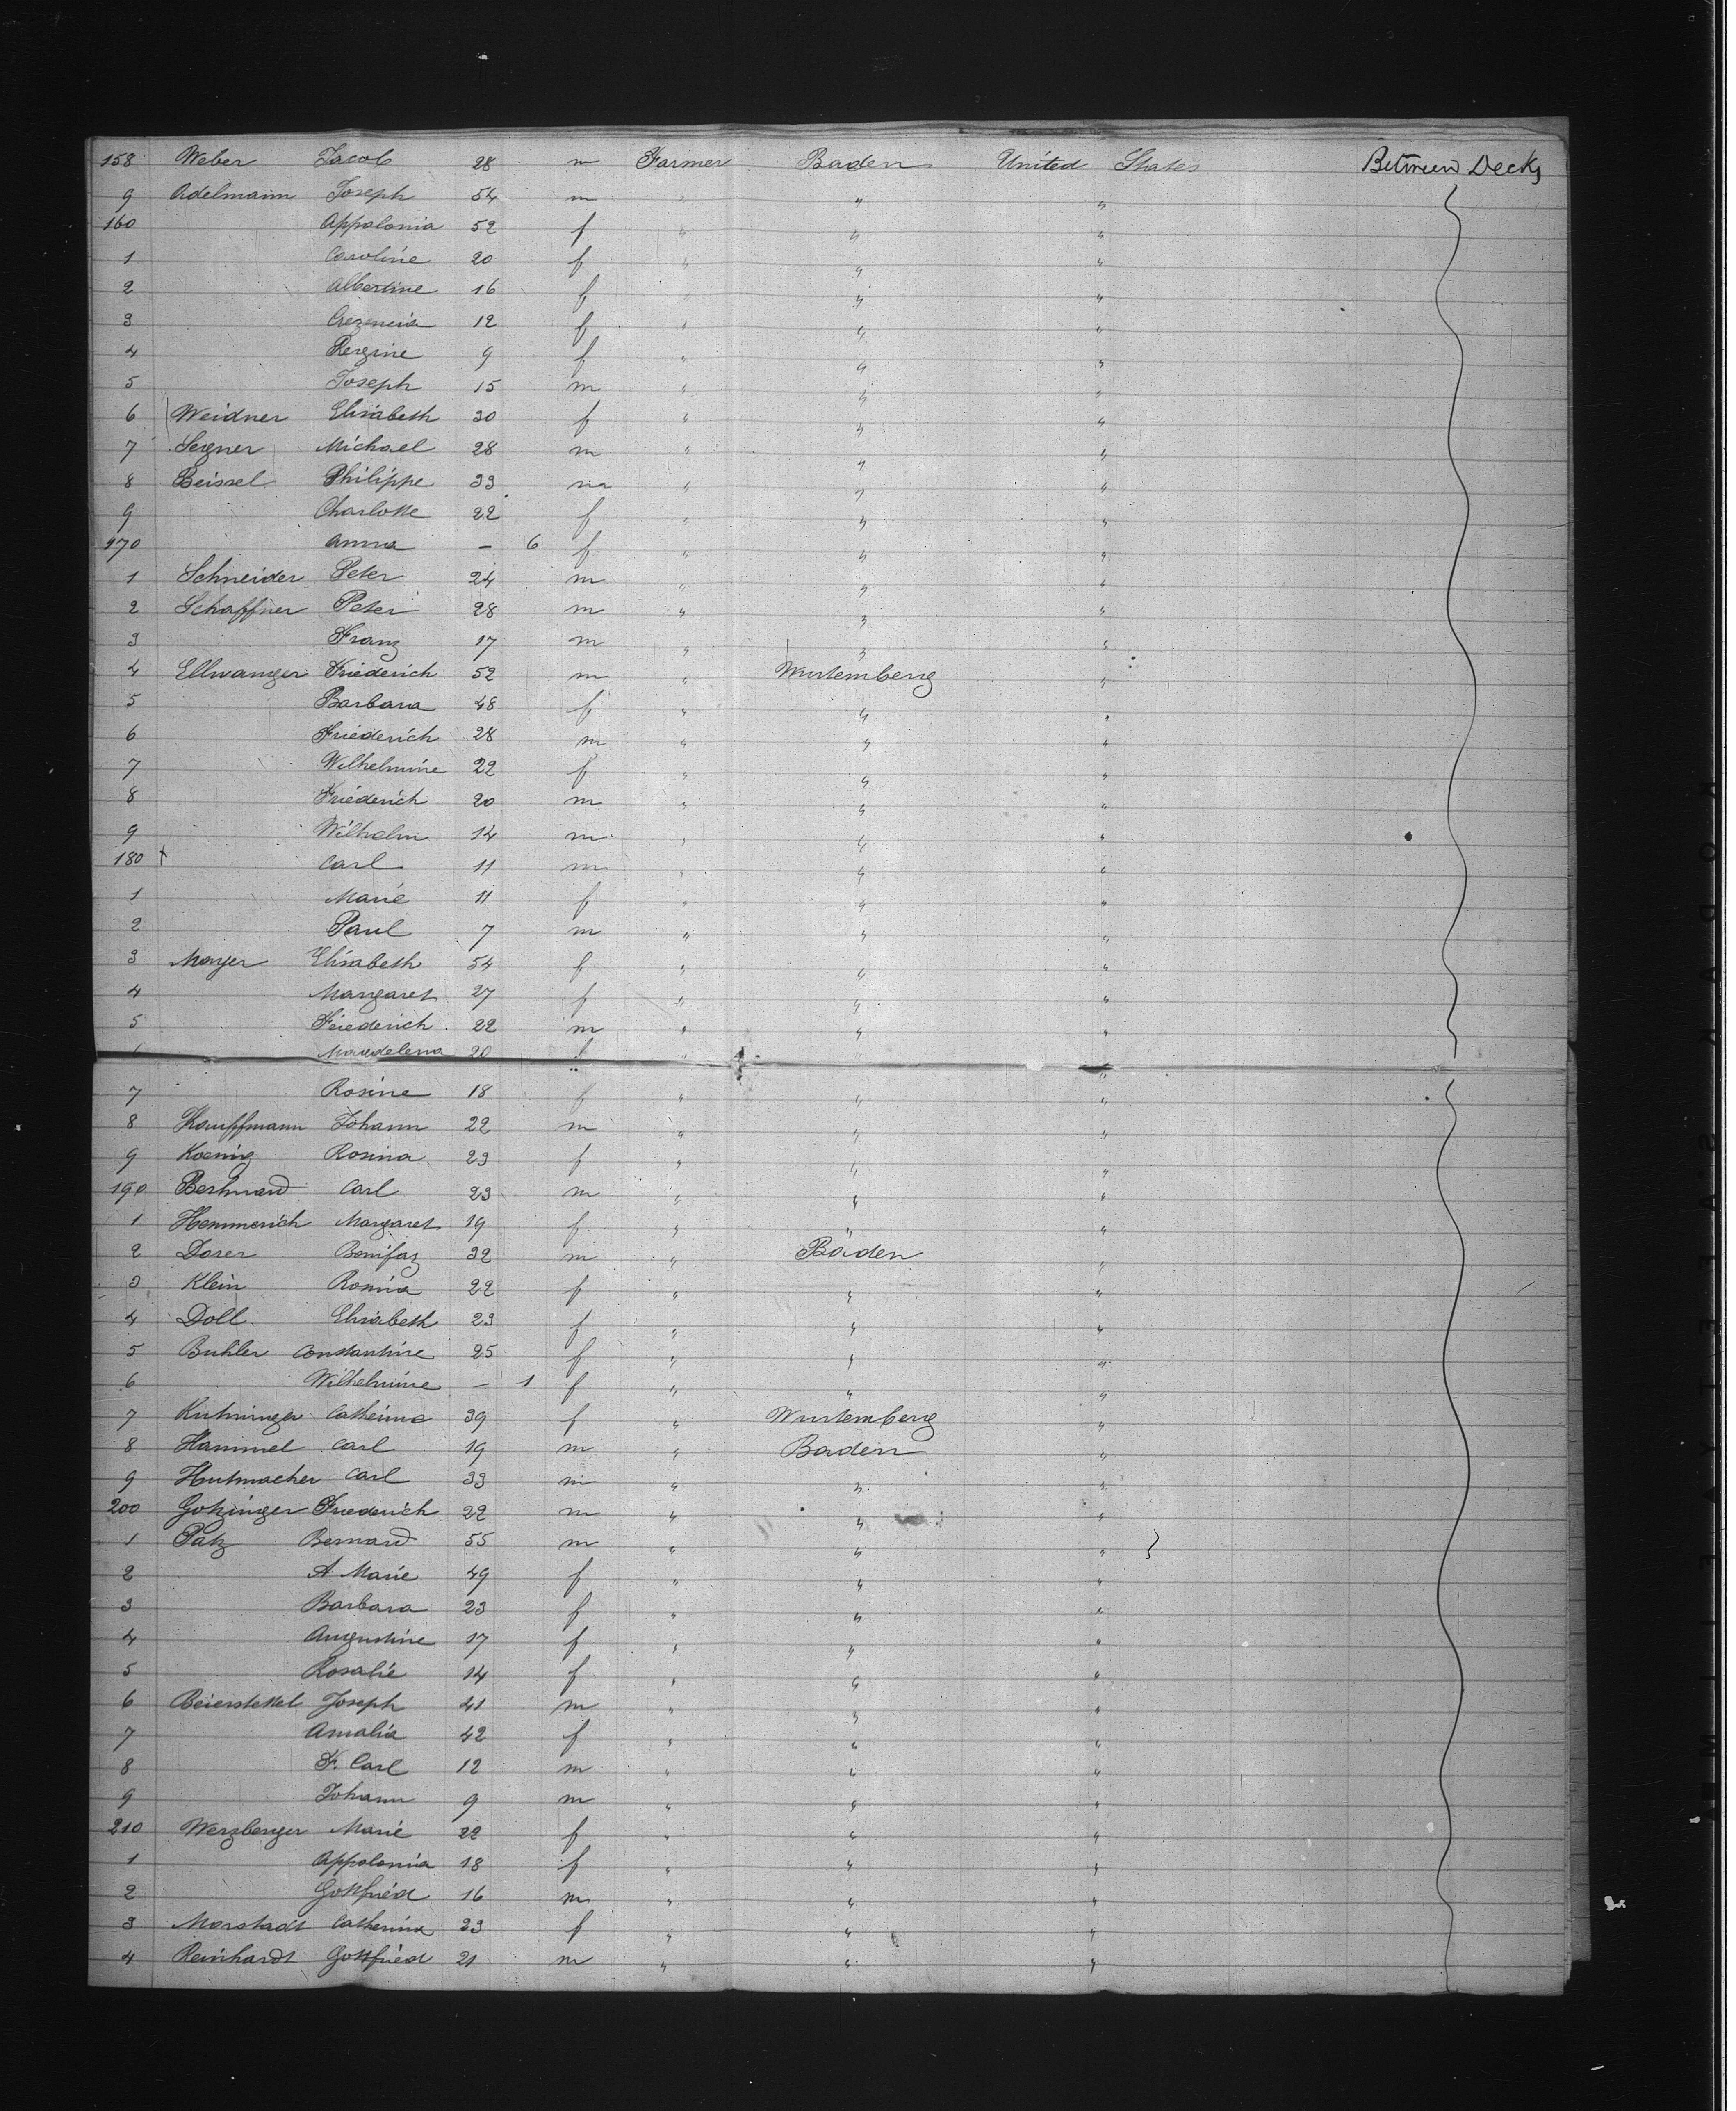 158 Weber Jacob 28 m Farmer Baden United States Between Decks
9 Adelmann Joseph 54 m " " "
160 Appolonia 52 f " " "
1 Caroline 20 f " " "
2 Albertine 16 f " " "
3 Crezencia 12 f " " "
4 Regine 9 f " " "
5 Joseph 15 m " " "
6 Weidner Elisabeth 30 f " " "
7 Segner Michael 28 m " " "
8 Beissel Philippe 33 m " " "
9 Charlotte 22 f " " "
170 Anna – 6 f " " "
1 Schneider Peter 24 m " " "
2 Schaffner Peter 28 m " " "
3 Franz 17 m " " "
4 Ellwanger Friederich 52 m " Wurtemberg "
5 Barbara 48 f " " "
6 Friederich 28 m " " "
7 Wilhelmine 22 f " " "
8 Friederich 20 m " " "
9 Wilhelm 14 m " " "
180 Carl 11 m " " "
1 Marie 11 f " " "
2 Paul 7 m " " "
3 Mayer Elisabeth 54 f " " "
4 Margaret 27 f " " "
5 Friederich 22 m " " "
Magdelena 20 f " " "
7 Rosine 18 f " " "
8 Kauffmann Johann 22 m " " "
9 Koenig Rosina 23 f " " "
190 Carl 23 m " " "
1 Hemmerich Margaret 19 f " " "
2 Dorer Bonifaz 32 m " Baden "
3 Klein Rosina 22 f " " "
4 Doll Elisabeth 23 f " " "
5 Buhler Constantine 25 f " " "
6 Wilhelmine – 1 f " " "
7 Catherina 39 f " Wurtemberg "
8 Hammel Carl 19 m " Baden "
9 Hutmacher Carl 33 m " " "
200 Gotzinger Friederich 22 m " " "
1 Patz Bernard 55 m " " "
2 A Marie 49 f " " "
3 Barbara 23 f " " "
4 Augustine 17 f " " "
5 Rosalie 14 f " " "
6 Joseph 41 m " " "
7 Amalia 42 f " " "
8 F. Carl 12 m " " "
9 Johann 9 m " " "
210 Werzberger Marie 22 f " " "
1 Appolonia 18 f " " "
2 Gottfried 16 m " " "
3 Morstadt Catherina 23 f " " "
4 Reinhardt Gottfried 21 m " " "